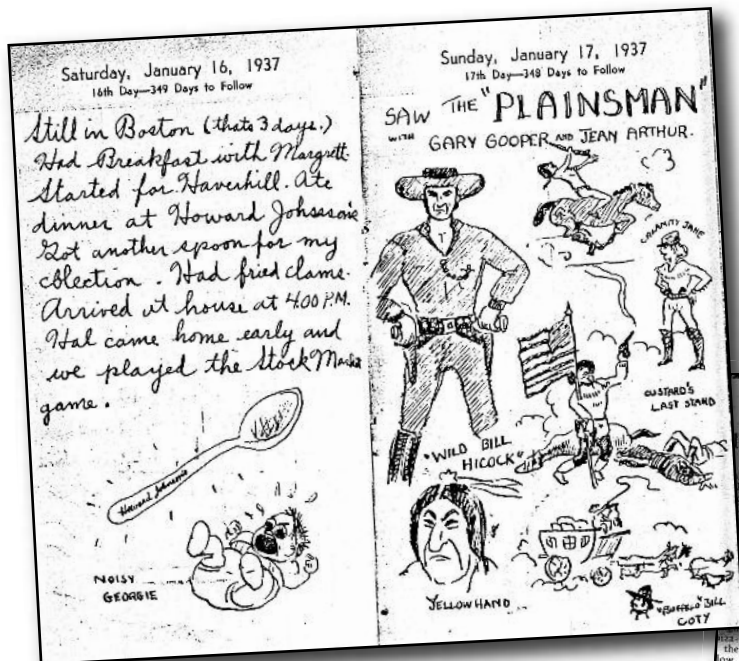 Saturday, January 16, 1937
16th Day—349 Days to Follow
Still in Boston (thats 3 days.)
Had Breakfast with Margrett.
Started for Haverhill. Ate
dinner at Howard Johnson's
Got another spoon for my
collection. Had fried clams.
Arrived at house at 4:00 P.M.
Hal came home early and
we played the Stock Market
game.
Howard Johnson's
NOISY
GEORGIE
Sunday, January 17, 1937
17th Day—348 Days to Follow
SAW THE "PLAINSMAN"
WITH GARY GOOPER AND JEAN ARTHUR.
CALAMITY JANE
CUSTARD'S
LAST STAND
"WILD BILL
HICOCK"
YELLOW HAND
"BUFFALO" BILL
COTY
the